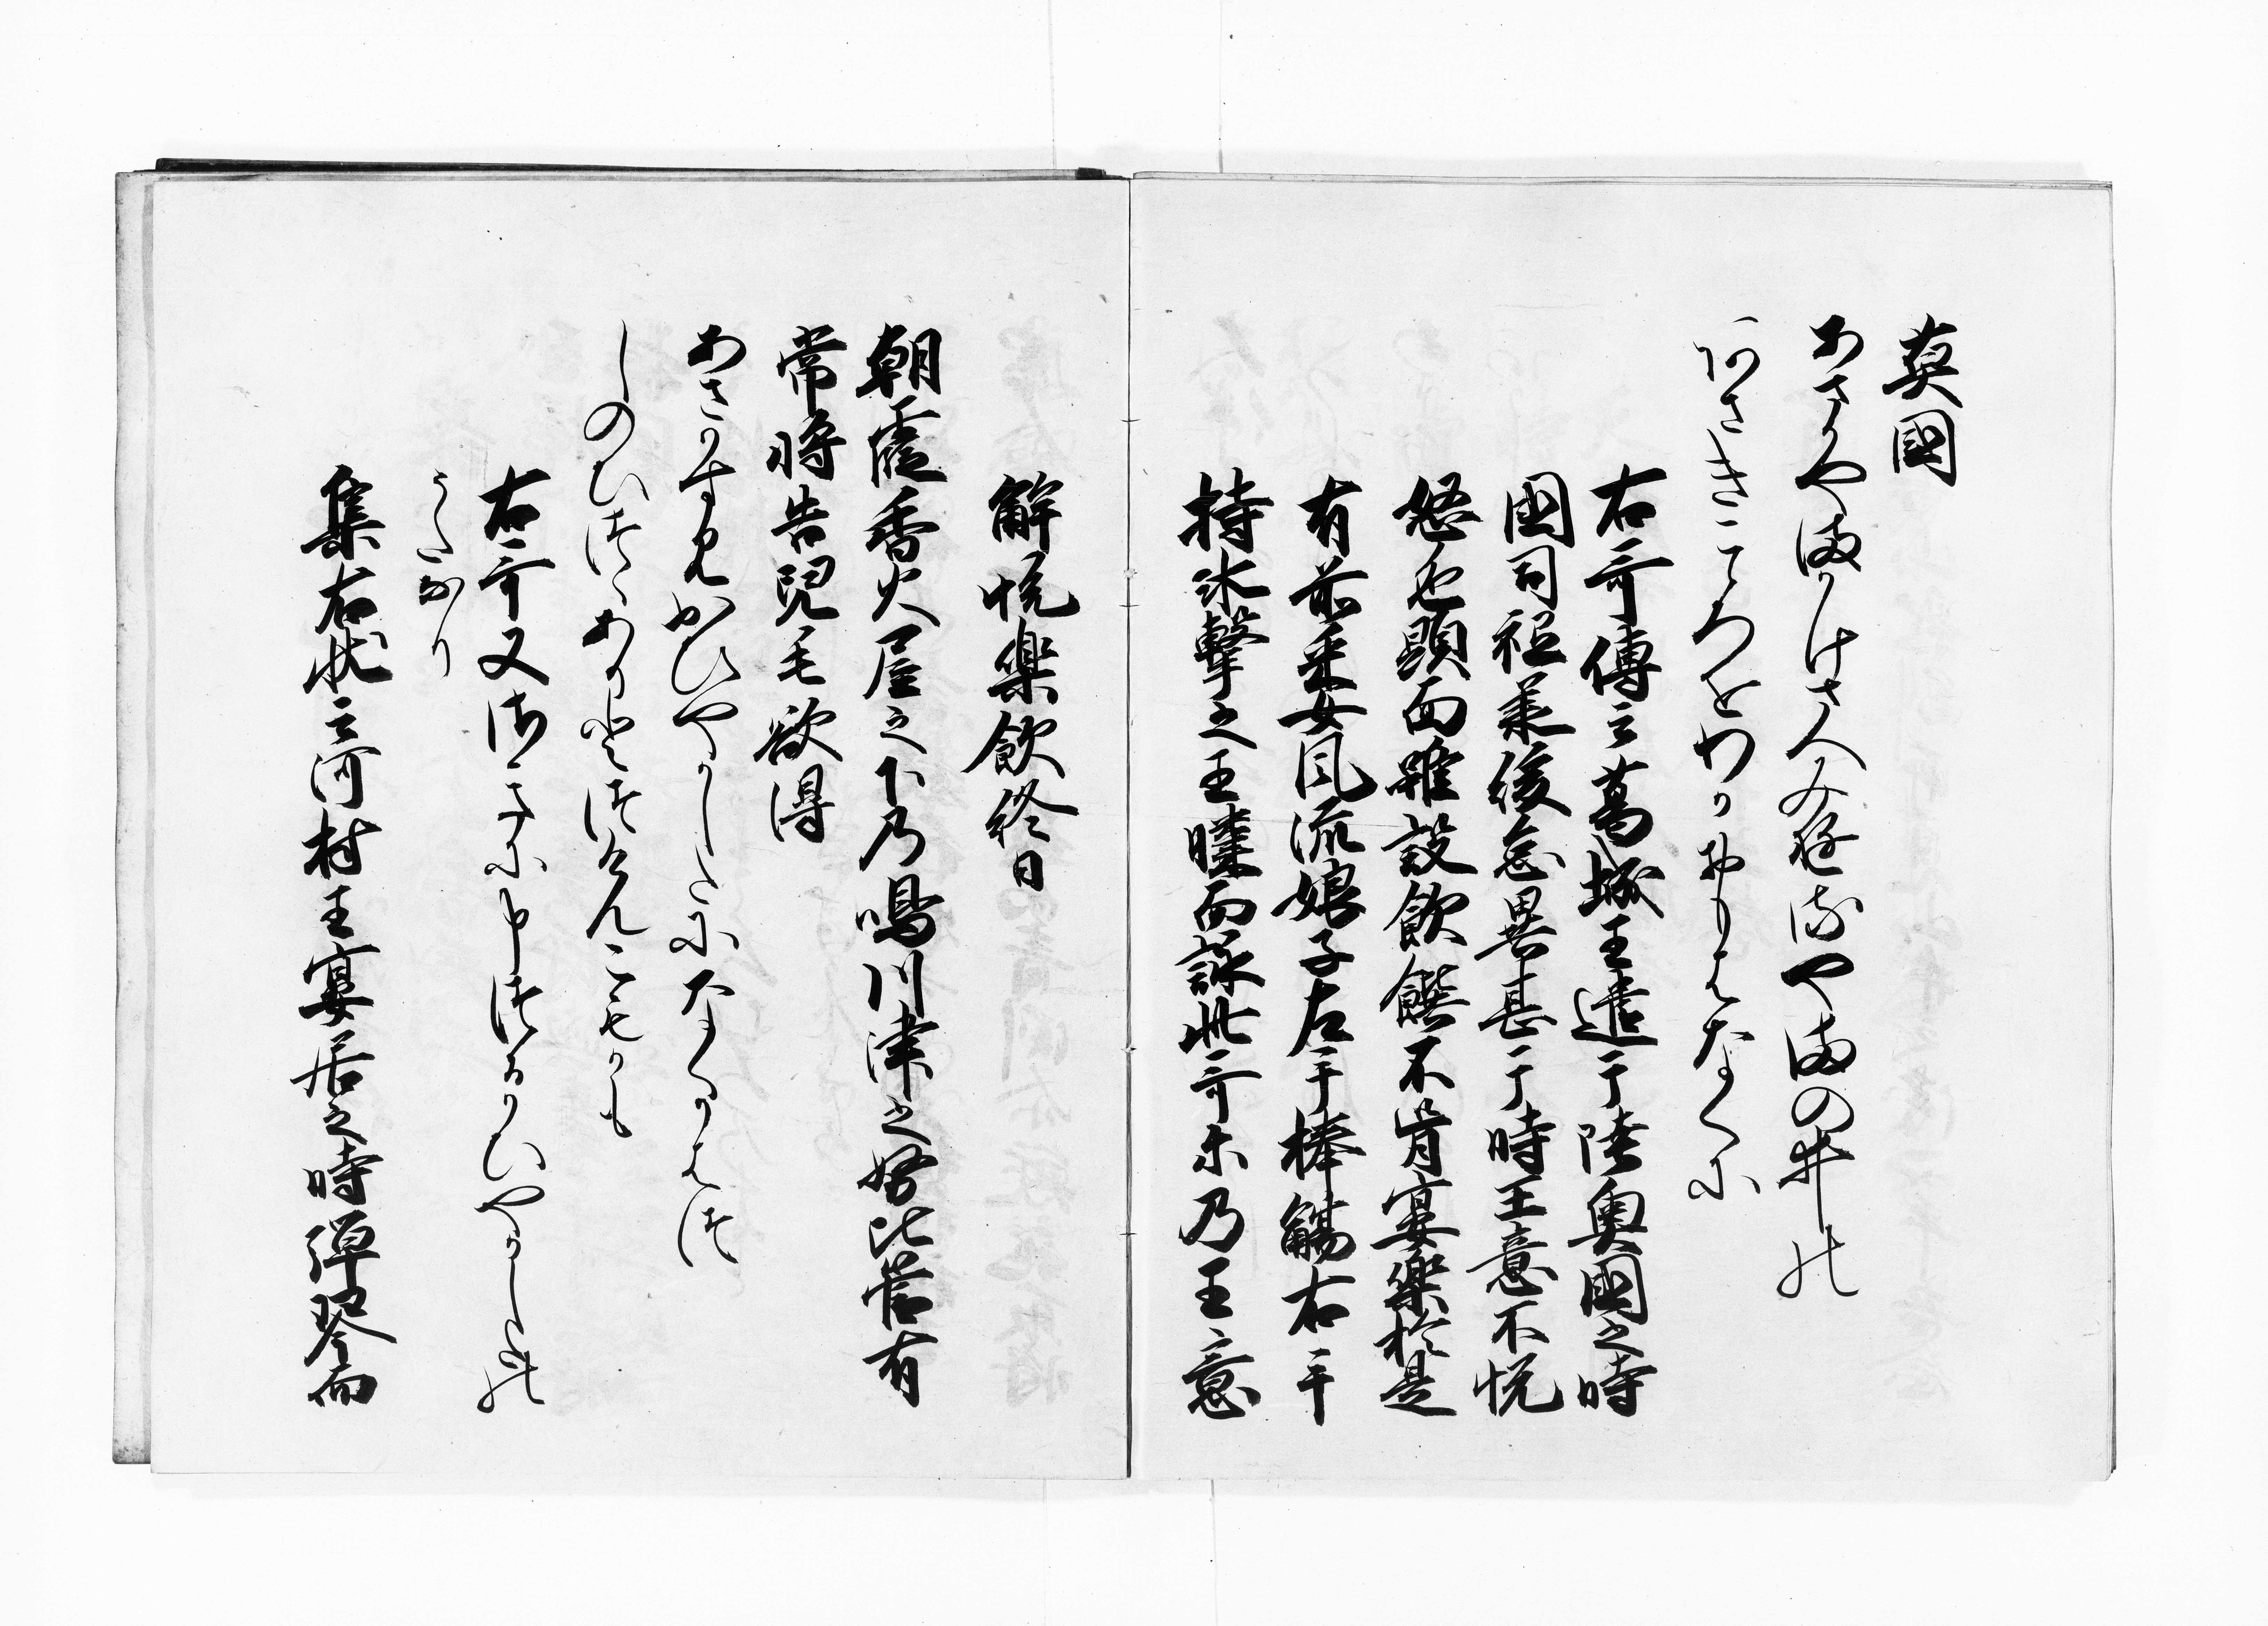 莫國
あさかやまかけさへみゆるやまの井の
あさきこころをわかおもはなくに
右哥傳云葛城王遣于陸奥國之時
國司祗羕緩怠異甚于時王意不悦
怒色顕面雖設飲饌不肯宴樂於是
有前采女風流娘子左手捧觴右手
持水撃之王膝而詠此哥尓乃王意
解悦樂飲終日
朝霞香火屋之下乃鳴川津之努比管有
常將告兒毛欲得
あさかすみかひやかしたになくかはつ
しのひつゝありとつけんこもかも
右哥又さきに申つるかひやかしたの
うたなり
集右状云河村王宴居之時弾琴而